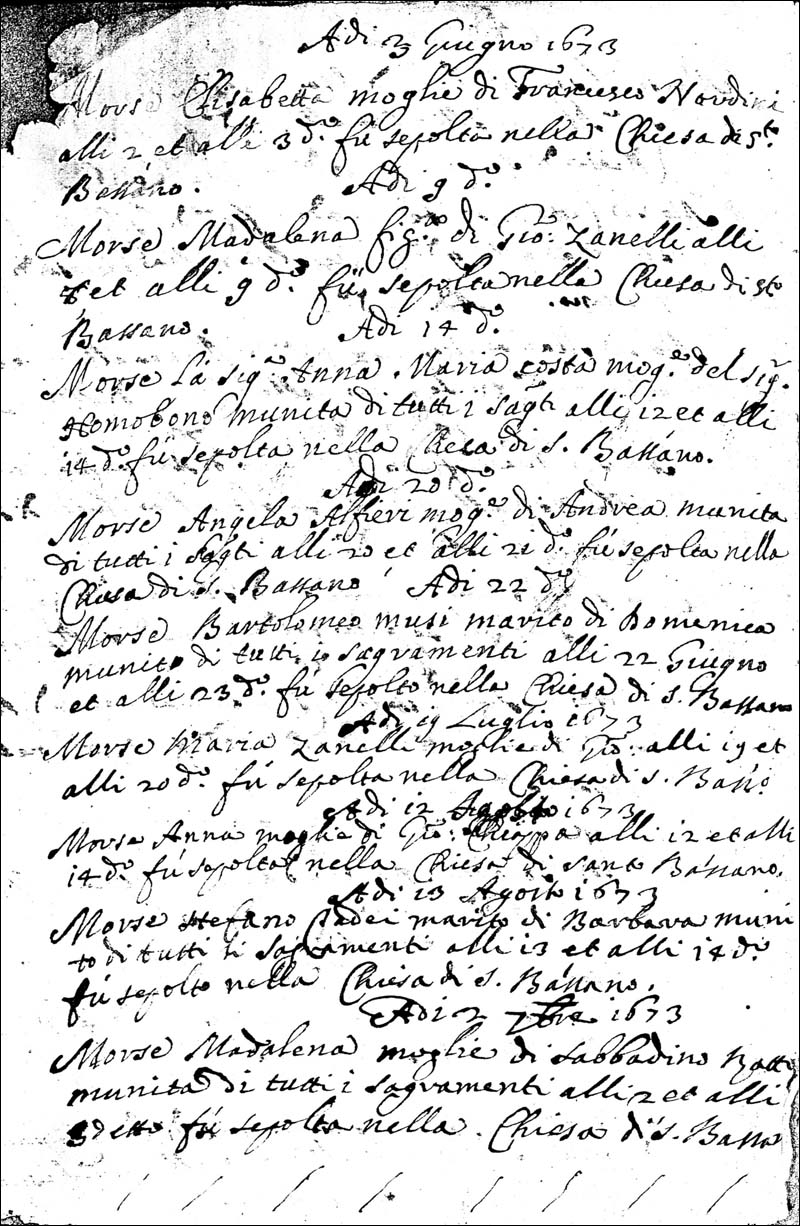 Adi 3 Giugno 1673
Morse Elisabetta moglie di Francesco Nordini
alli 2, et alli 3 d.º fù sepolta nella Chiesa di S.to
Bassano.
Adi 9 d.º
Morse Madalena fig.la di Gio: Zanelli alli
8 et alli 9 d.º fù sepolta nella Chiesa di Sto
Bassano.
Adi 14 d.º
Morse La sig.ra Anna Maria Costa mog.e del sig.
Homobono munita di tutti i sagti alli 12 et alli
14 d.º fù sepolta nella Chiesa di S. Bassano.
Adi 20 d.º
Morse Angela Alfieri mog.e di Andrea munita
di tutti i sagti alli 20 et alli 21 d.º fù sepolta nella
Chiesa di S. Bassano
Adi 22 d.º
Morse Bartolomeo musi marito di Domenica
munito di tutti io sagramenti alli 22 Giugno
et alli 23 d.º fù sepolto nella Chiesa di S. Bassano
Adi 19 Luglio 1673
Morse Maria Zanelli moglie di Gio: alli 19 et
alli 20 d.º fù sepolta nella Chiesa di S. Bass.o
Adi 12 Agosto 1673
Morse Anna moglie di Gio: Chiappa alli 12 et alli
14 d.º fù sepolta nella Chiesa di Santo Bassano.
Adi 13 Agosto 1673
Morse Stefano Tadei marito di Barbara muni
to di tutti li sagramenti alli 13 et alli 14 d.º
fù sepolto nella Chiesa di S. Bassano.
Adi 2 7bre 1673
Morse Madalena moglie di Sabbadino Batti
munita di tutti i sagramenti alli 2 et alli
3 detto fù sepolta nella Chiesa di S. Bassa